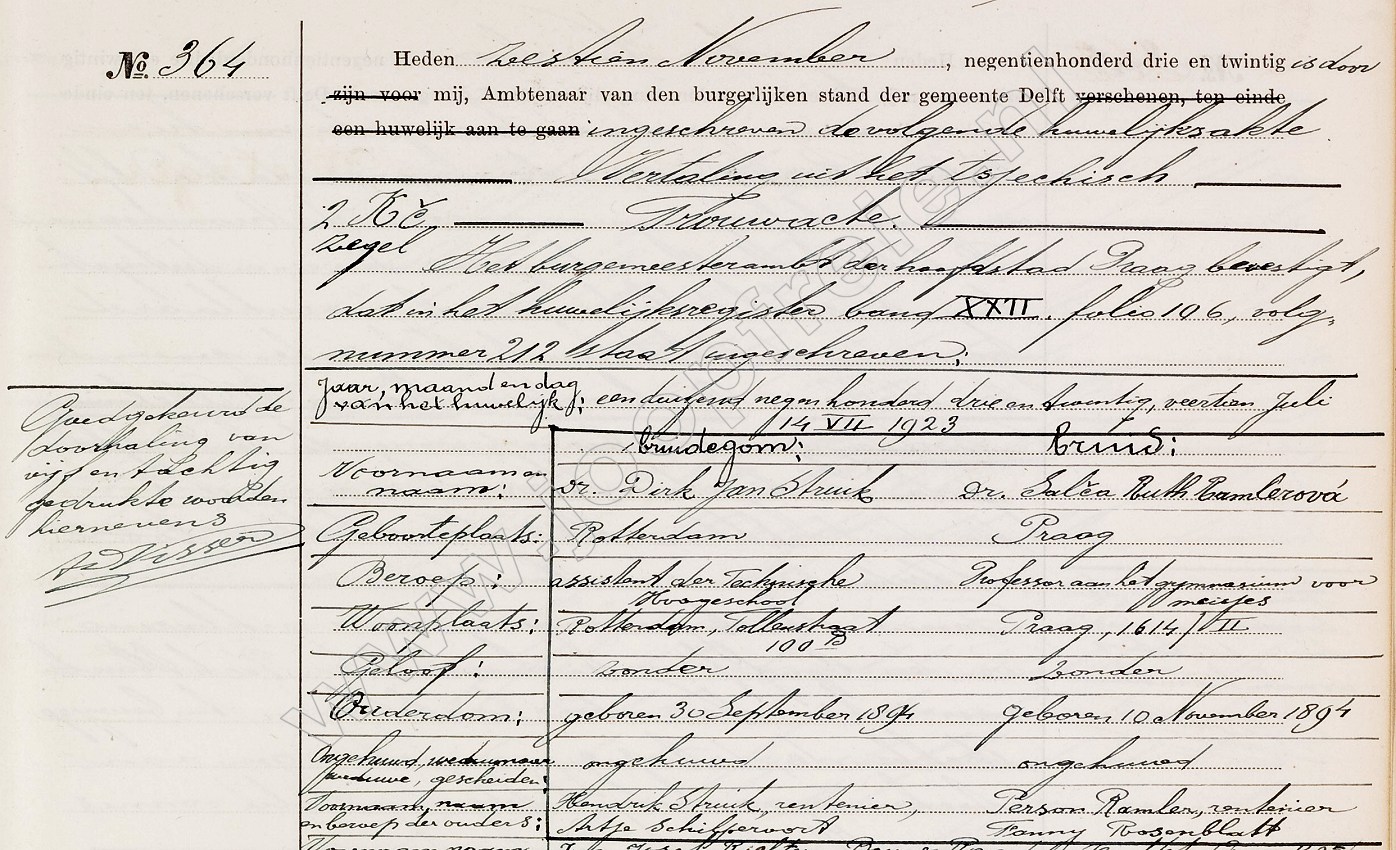 No. 364
Heden zestien November, negentienhonderd drie en twintig is door
zijn voor mij, Ambtenaar van den burgerlijken stand der gemeente Delft verschenen, ten einde
een huwelijk aan te gaan ingeschreven de volgende huwelijksakte.
Vertaling uit het Tsjechisch
2 Kč. Trouwacte.
zegel
Het burgemeesterambt der hoofdstad Praag bevestigt,
dat in het huwelijksregister band XXII. folio 106, volg-
nummer 212 staat ingeschreven:
Jaar, maand en dag
van het huwelijk: eenduizend negenhonderd drie en twintig, veertien Juli
14 VII 1923
bruidegom: bruid:
Voornaam en
naam: dr. Dirk Jan Struik dr. Salča Ruth Ramlerová
Geboorteplaats: Rotterdam Praag
Beroep: assistent der Technische Professor aan het gymnasium voor
Hoogeschool meisjes
Woonplaats: Rotterdam, Tollensstraat Praag, 1614/VII
100 B
Geloof: zonder zonder
Ouderdom: geboren 30 September 1894 geboren 10 November 1894
Ongehuwd, weduwnaar
weduwe, gescheiden: ongehuwd ongehuwd
Voornaam, naam Hendrik Struik, rentenier, Person Ramler, rentenier
en beroep der ouders: Artje Schilpervoort Fanny Rosenblatt
Goedgekeurd de
doorhaling van
vijf en tachtig
gedrukte woorden
hiernevens
Visser
www.joopfrele.nl